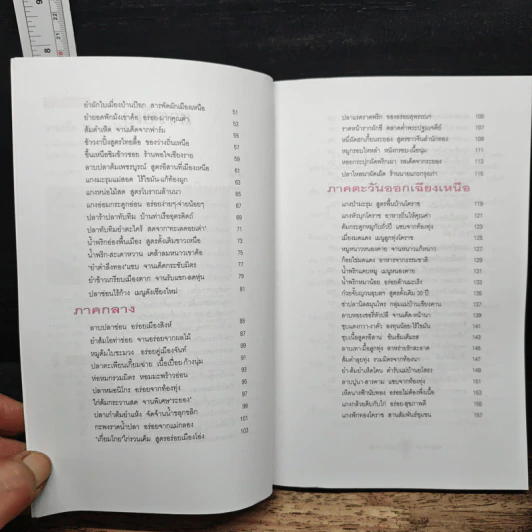 ยำผักใบเมี่ยงบ้านป๊อก สารพัดผักเมืองเหนือ 51
ยำยอดฟักมังเขาค้อ อร่อย-มากคุณค่า 53
ส้มตำเห็ด จานเด็ดจากฟาร์ม 55
ข้าวงาปิ้งสูตรไทยลื้อ ของว่างถิ่นเหนือ 59
ขึ้นเหนือชิมข้าวซอย ร้านพอใจเชียงราย 61
ลาบปลาส้มเพชรบูรณ์ สูตรอีสานที่เมืองเหนือ 63
แกงมะรุมแม่สอด ไร้ไขมัน-แก้ท้องผูก 65
แกงหน่อไม้สด สูตรโบราณล้านนา 67
แกงอ่อมกระดูกอ่อน อร่อยง่ายๆ-จ่ายน้อยๆ 69
ปลาร้าปลาทับทิม บ้านท่าเรืออุตรดิตถ์
ปลาทับทิมยำตะไคร้ สดจาก"ทะเลดอยเต่า" 71
น้ำพริกอ่องพื้นเมือง สูตรดั้งเดิมชาวเหนือ 73
น้ำพริก-สะเดาหวาน เคล้าลมหนาวเขาค้อ 75
"ยำตำลึงทอง"แชบ จานเด็ดกระชับมิตร 77
ยำข้าวเกรียบเมืองตาก จานรับแขก-ลดหุ่น 79
ปลาช่อนไร้ก้าง เมนูดังเชียงใหม่ 81
ภาคกลาง
ลาบปลาช่อน อร่อยเมืองสิงห์ 85
ยำส้มโอท่าข่อย จานอร่อยจากผลไม้ 87
หมูต้มใบชะมวง อร่อยคู่เมืองจันท์ 89
ปลาตะเพียนเกี้ยมฉ่าย เนื้อเปื่อยก้างนุ่ม 91
ห่อหมกรวมมิตร หอมมะพร้าวอ่อน 93
ปลาหมอนิโกร อร่อยจากท้องทุ่ง 95
ไก่ต้มกระวานสด จานพิเศษ"ระยอง" 97
ปลาเก๋าต้มยำแห้ง จัดจ้านน้ำขลุกขลิก 99
กะพงราดน้ำปลา อร่อยจากแม่กลอง 101
"เกี้ยมโกย"ไก่รวนเค็ม สูตรอร่อยเมืองโอ่ง 103
ปลาแรดราดพริก ของอร่อยสุพรรณฯ 105
ราดหน้ารากผักชี ตลาดต่ำพระปฐมเจดีย์ 107
หมี่ผัดฮกเกี้ยนระยอง สูตรชาวจีนสำนักทอง 109
หมูกรอบไหหลำ หนังกรอบ-เนื้อนุ่ม 111
หอยกระปุกผัดพริกเผา รสเด็ดจากระยอง 113
ปลาไหลนาผัดเผ็ด ร้านนายเกรกรุงเก่า 115
ภาคตะวันออกเฉียงเหนือ
แกงป่ามะรุม สูตรพื้นบ้านโคราช 119
แกงหัวบุกโคราช อาหารถิ่นให้คุณค่า 121
ต้มกระดูกหมูกับถั่วปี แซบจากท้องทุ่ง 123
เมี่ยงมดแดง เมนูลูกทุ่งโคราช 125
หมูหนาวหนองคาย จานหนาวแก้หนาว 127
ก้อยไข่มดแดง อาหารจากธรรมชาติ 129
น้ำพริกแคบหมู เมนูหนองคาย 131
น้ำพริกหมาน้อย อร่อยต้านมะเร็ง 133
135
137
139
141
143
ลาบเทา-มื้อลูกทุ่ง สาหร่ายรักสะอาด 145
ส้มตำลูกยุง รวมมิตรจากท้องนา 147
149
ลาบปูนา-สารพาม แซบจากท้องทุ่ง 151
เห็ดนางฟ้านับทอง อร่อยไม่ต้องพึ่งเนื้อ 153
แกงกล้วยดิบกับไก่ อร่อย-สุขภาพดี 155
แกงฟักทองโคราช สานสัมพันธ์ชุมชน 157